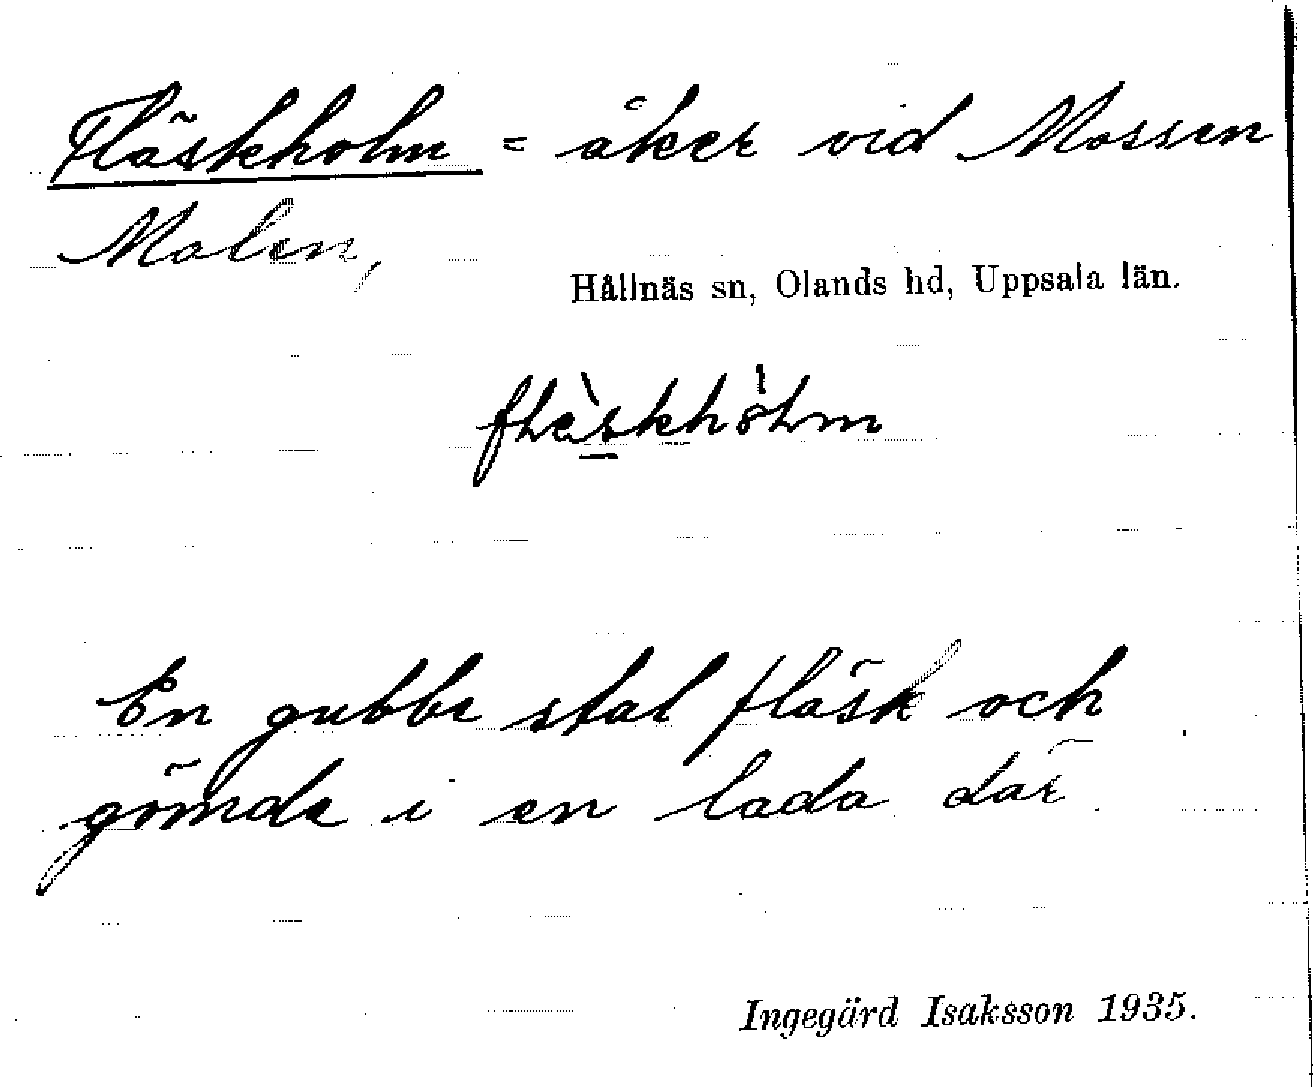 Fläskholm = åker vid Mossen
Malen,
Hållnäs sn, Olands hd, Uppsala län.
En gubbe stal fläsk och
gömde i en lada där
Ingegärd Isaksson 1935.